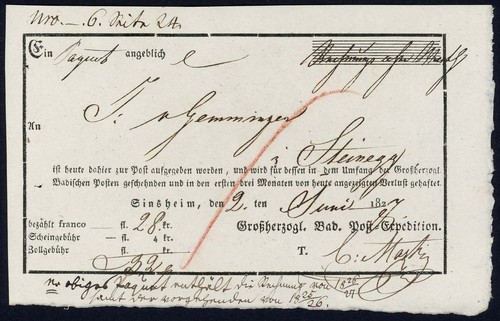 Nro. —. 6. Seite 24.
Ein Paquet angeblich
Rechnungs
An T: v Gemmingen
Steinegg
ist heute dahier zur Post aufgegeben worden, und wird für dessen in dem Umfang der Großherzogl.
Badischen Posten geschehnden und in den ersten drei Monaten von heute angezeigten Verlust gehaftet.
Sinsheim, den 2. ten Juni 1827
bezahlt franco — fl. 28 kr. Großherzogl. Bad. Post-Expedition.
Scheingebühr — fl. 4 kr.
Zollgebühr — fl. — kr. T. C:
32
obiges Paquet enthält die Rechnung von 1826/27
samt der vorgehenden von 1825/26.